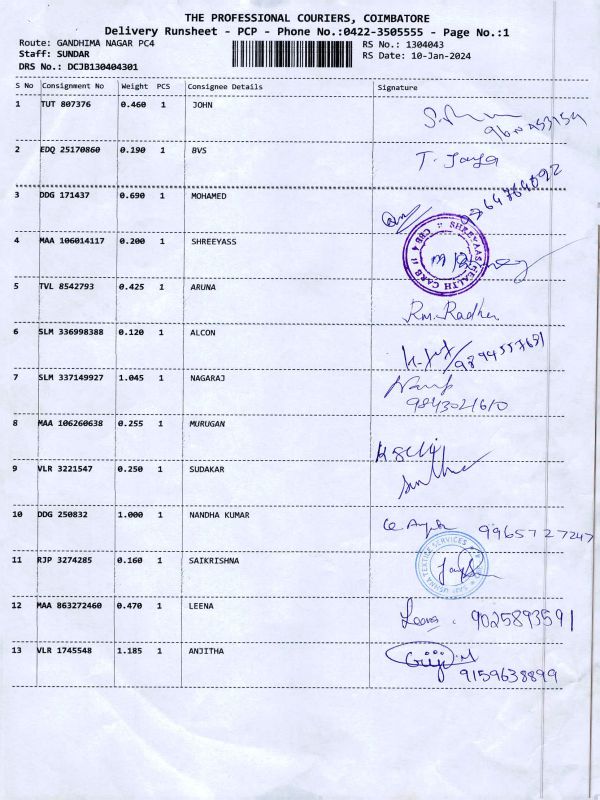 THE PROFESSIONAL COURIERS, COIMBATORE
Delivery Runsheet - PCP - Phone No.:0422-3505555 - Page No.:1
Route: GANDHIMA NAGAR PC4 RS No.: 1304043
Staff: SUNDAR RS Date: 10-Jan-2024
DRS No.: DCJB130404301
S No Consignment No Weight PCS Consignee Details Signature
1 TUT 807376 0.460 1 JOHN
2 EDQ 25170860 0.190 1 BVS T. Jaya
3 DDG 171437 0.690 1 MOHAMED
4 MAA 106014117 0.200 1 SHREEYASS
5 TVL 8542793 0.425 1 ARUNA Rm. Radha
6 SLM 336998388 0.120 1 ALCON
7 SLM 337149927 1.045 1 NAGARAJ
9843021610
8 MAA 106260638 0.255 1 MURUGAN
9 VLR 3221547 0.250 1 SUDAKAR
10 DDG 250832 1.000 1 NANDHA KUMAR 9965727247
11 RJP 3274285 0.160 1 SAIKRISHNA
12 MAA 863272460 0.470 1 LEENA Leena. 9025893591
13 VLR 1745548 1.185 1 ANJITHA
9159638899